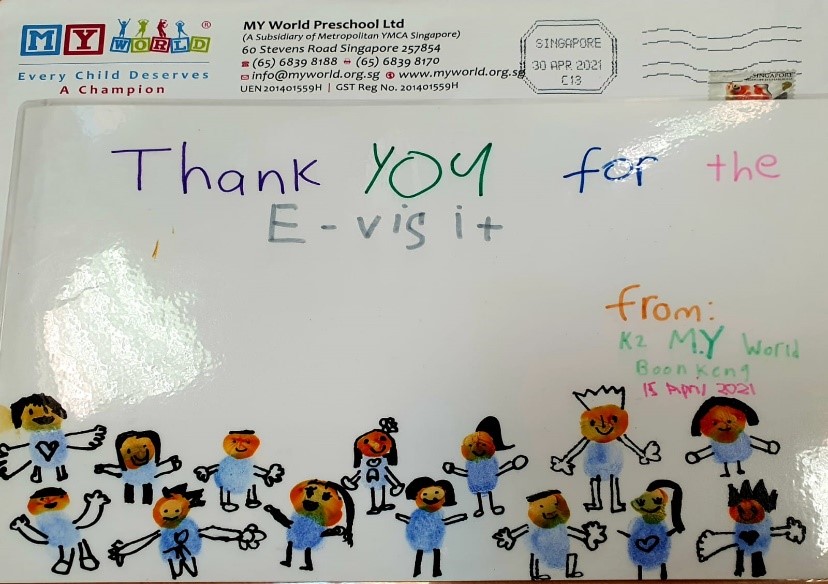 MY WORLD ®
Every Child Deserves
A Champion
MY World Preschool Ltd
(A Subsidiary of Metropolitan YMCA Singapore)
60 Stevens Road Singapore 257854
(65) 6839 8188 (65) 6839 8170
info@myworld.org.sg www.myworld.org.sg
UEN 201401559H | GST Reg No. 201401559H
SINGAPORE
30 APR 2021
C13
SINGAPORE
Thank YOU for the
E-visit
from:
K2 M.Y World
Boon Keng
15 April 2021